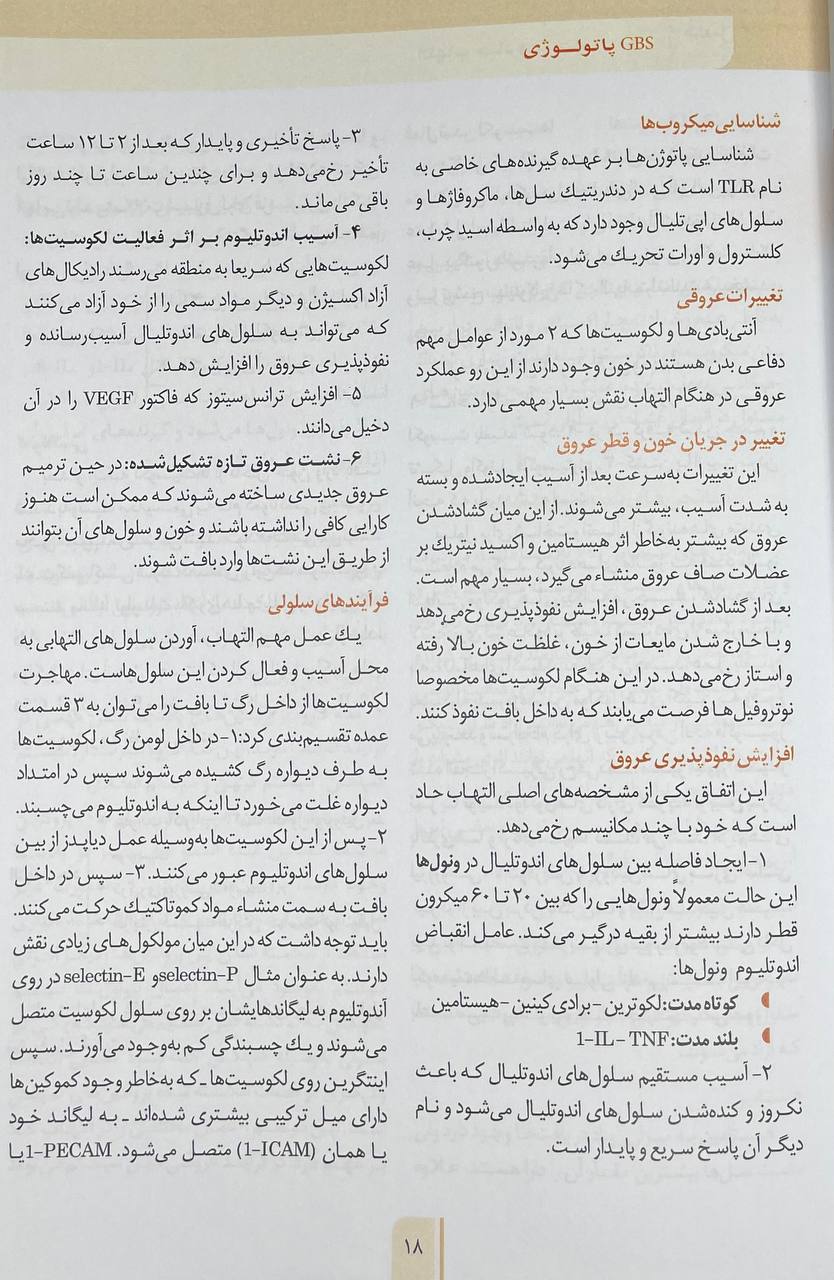 GBS پاتولوژی
شناسایی میکروب‌ها
شناسایی پاتوژن‌ها بر عهده گیرنده‌های خاصی به
نام TLR است که در دندریتیك سل‌ها، ماکروفاژها و
سلول‌های اپی‌تلیال وجود دارد که به واسطه اسید چرب،
کلسترول و اورات تحریك می‌شود.
تغییرات عروقی
آنتی‌بادی‌ها و لکوسیت‌ها که ۲ مورد از عوامل مهم
دفاعی بدن هستند در خون وجود دارند از این رو عملکرد
عروقی در هنگام التهاب نقش بسیار مهمی دارد.
تغییر در جریان خون و قطر عروق
این تغییرات به‌سرعت بعد از آسیب ایجادشده و بسته
به شدت آسیب، بیشتر می‌شوند. از این میان گشادشدن
عروق که بیشتر به‌خاطر اثر هیستامین و اکسید نیتریك بر
عضلات صاف عروق منشاء می‌گیرد، بسیار مهم است.
بعد از گشادشدن عروق، افزایش نفوذپذیری رخ‌می‌دهد
و با خارج شدن مایعات از خون، غلظت خون بالا رفته
و استاز رخ‌می‌دهد. در این هنگام لکوسیت‌ها مخصوصا
نوتروفیل‌ها فرصت می‌یابند که به داخل بافت نفوذ کنند.
افزایش نفوذپذیری عروق
این اتفاق یکی از مشخصه‌های اصلی التهاب حاد
است که خود با چند مکانیسم رخ‌می‌دهد.
۱- ایجاد فاصله بین سلول‌های اندوتلیال در ونول‌ها
این حالت معمولاً ونول‌هایی را که بین ۲۰ تا ۶۰ میکرون
قطر دارند بیشتر از بقیه درگیر می‌کند. عامل انقباض
اندوتلیوم ونول‌ها:
کوتاه مدت: لکوترین - برادی‌کینین - هیستامین
بلند مدت: 1-IL - TNF
۲- آسیب مستقیم سلول‌های اندوتلیال که باعث
نکروز و کنده‌شدن سلول‌های اندوتلیال می‌شود و نام
دیگر آن پاسخ سریع و پایدار است.
۳- پاسخ تأخیری و پایدار که بعد از ۲ تا ۱۲ ساعت
تأخیر رخ‌می‌دهد و برای چندین ساعت تا چند روز
باقی می‌ماند.
۴- آسیب اندوتلیوم بر اثر فعالیت لکوسیت‌ها:
لکوسیت‌هایی که سریعا به منطقه می‌رسند رادیکال‌های
آزاد اکسیژن و دیگر مواد سمی را از خود آزاد می‌کنند
که می‌تواند به سلول‌های اندوتلیال آسیب‌رسانده و
نفوذپذیری عروق را افزایش دهد.
۵- افزایش ترانس‌سیتوز که فاکتور VEGF را در آن
دخیل‌می‌دانند.
۶- نشت عروق تازه تشکیل‌شده: در حین ترمیم
عروق جدیدی ساخته می‌شوند که ممکن است هنوز
کارایی کافی را نداشته باشند و خون و سلول‌های آن بتوانند
از طریق این نشت‌ها وارد بافت شوند.
فرآیندهای سلولی
یك عمل مهم التهاب، آوردن سلول‌های التهابی به
محل آسیب و فعال کردن این سلول‌هاست. مهاجرت
لکوسیت‌ها از داخل رگ تا بافت را می‌توان به ۳ قسمت
عمده تقسیم‌بندی کرد: ۱- در داخل لومن رگ، لکوسیت‌ها
به طرف دیواره رگ کشیده می‌شوند سپس در امتداد
دیواره غلت می‌خورد تا اینکه به اندوتلیوم می‌چسبند.
۲- پس از این لکوسیت‌ها به‌وسیله عمل دیاپدز از بین
سلول‌های اندوتلیوم عبور می‌کنند. ۳- سپس در داخل
بافت به سمت منشاء مواد کموتاکتیك حرکت می‌کنند.
باید توجه داشت که در این میان مولکول‌های زیادی نقش
دارند. به عنوان مثال selectin-P و selectin-E در روی
آندوتلیوم به لیگاندهایشان بر روی سلول لکوسیت متصل
می‌شوند و یك چسبندگی کم به‌وجود می‌آورند. سپس
اینتگرین روی لکوسیت‌ها ـ که به‌خاطر وجود کموکین‌ها
دارای میل ترکیبی بیشتری شده‌اند ـ به لیگاند خود
یا همان (1-ICAM) متصل می‌شود. 1-PECAM یا
۱۸